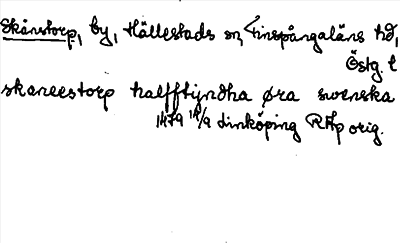 Skånstorp, by, Hällestads sn, Finspångaläns hd,
Östg. l
skaneestorp halfftijndha øra swenska
1479 14/9 Linköping RAp orig.